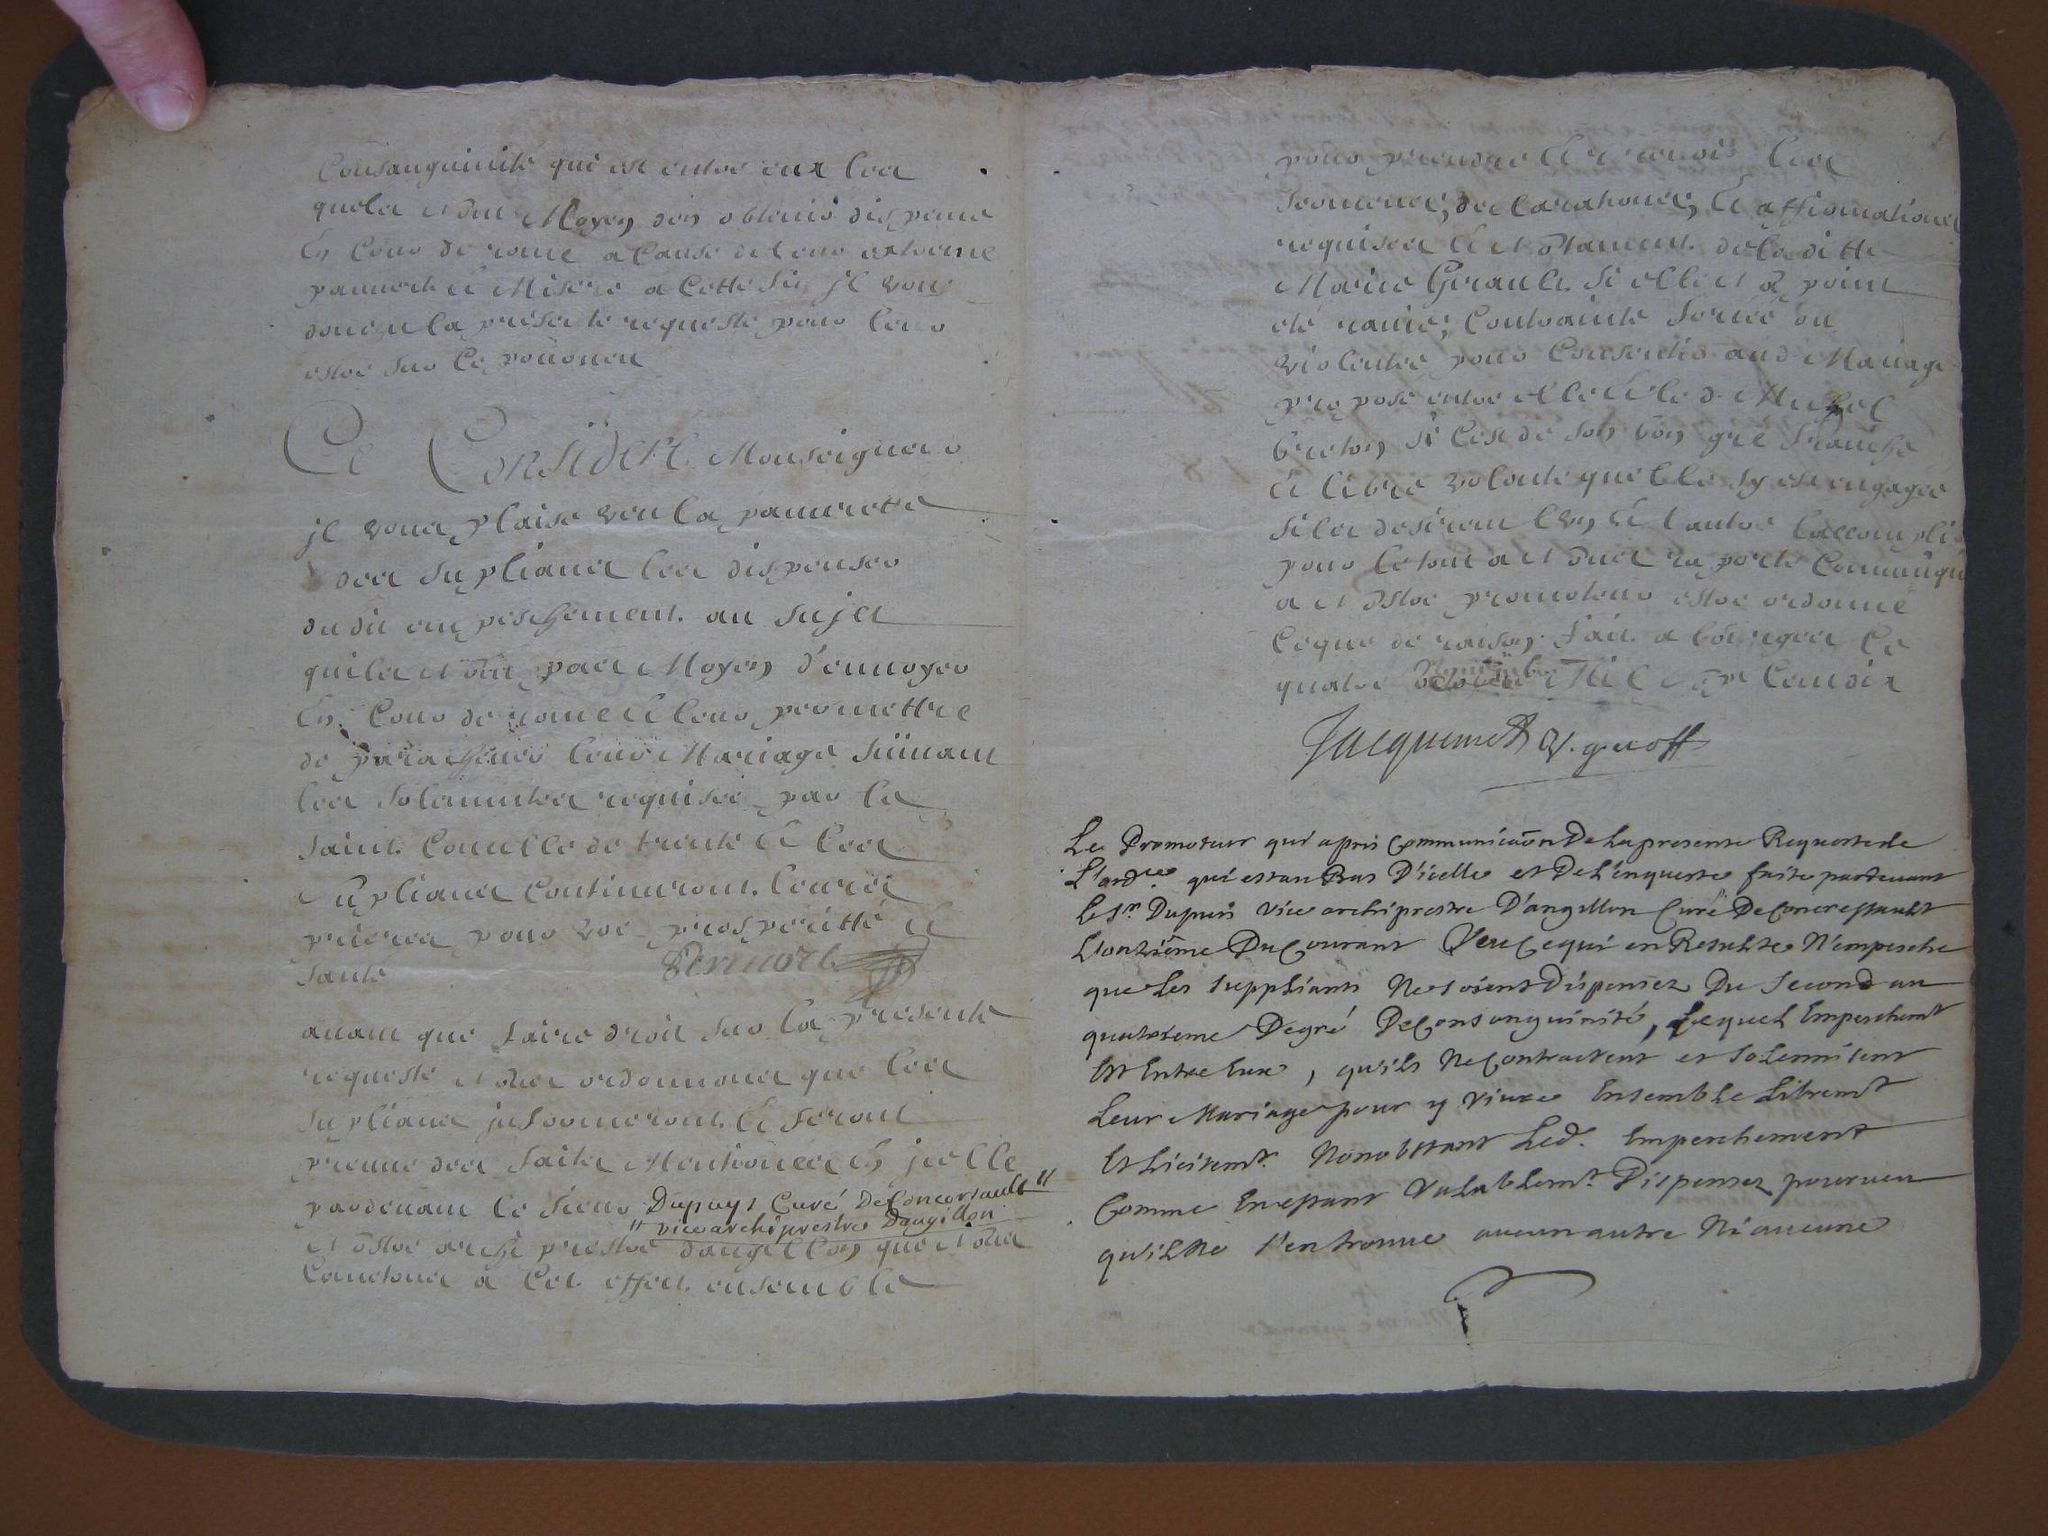 Consanguinité qui est entre eux les
quels n'ont Moyen d'en obtenir dispense
En Cour de rome a Cause de leur extreme
pauureté et Misere a Cette fin jl vous
donent la présente requeste pour leur
estre sur Ce pouruen
Ce Consideré Monseigneur
jl vous plaise veu la pauureté
des supliants les dispenser
dudit empeschement au sujet
quils n'ont pas Moyen d'enuoyer
En Cour de rome et leur permettre
de paracheuer leur Mariage suiuant
les solemnites requises par le
saint Concille de trente et les
supliants Continuront leures
prieres pour vos prosperitté et
santé
auant que faire droit sur la presente
requeste nous ordonnons que les
supliants jnformeront et feront
preuue des faits Mentionees En jcelle
pardeuant le sieur Dupuys Curé De Concorsault "
" vice archiprestre Dangillon
nostre archiprestre dangellon que nous
Commetons a Cet effect ensemble
pour prendre et receuoir les
sermens, declarations, et affirmations
requises et notamment de laditte
Marie Girault si elle n'a point
eté rauie, Contrainte forcée ou
violentée pour Consentir aud Mariage
proposé entre elle et led Michel
breton si C'est de son bon gré franche
et libre volonté quelle sy est engagée
silz desirent l'un et l'autre laccomplir
pour le tout a nous raporté Communiqu
a nostre promoteur estre ordonné
Ceque de raison fait a bourges le
quatre Nouembre Mil sept Cent dix
Jacquemet V. g. et off
Le Promoteur qui apris Communicaōn De La presente Requeste de
L'ordce qui est au Bas D'icelle et De L'enqueste faite pardeuant
Le Sr. Dupuis vice archiprestre D'angillon Curé De Concressault
L'onziéme Du Courant Veu Ce qui en Resulte N'empesche
que Les suppliants Ne soient Dispensez Du second au
quatriéme Degré De Consanguinité, Lequel Empeschemt
Est Entre Eux, qu'ils Ne Contractent et solemnisent
Leur Mariage pour y viure Ensemble Libremt
Et Licitemt. Nonobstant Led. Empeschement
Comme En estant valablemt. Dispensez pourueu
qu'il Ne s'en trouue aucun autre Ni aucune